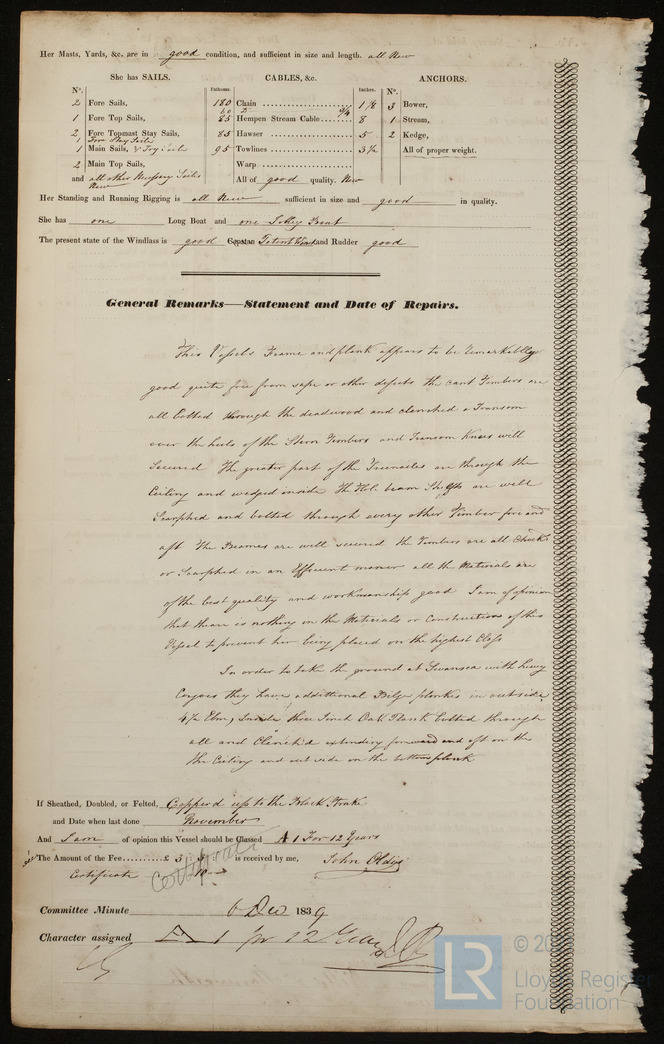 Her Masts, Yards, &c. are in good condition, and sufficient in size and length. all New
She has SAILS. CABLES, &c. ANCHORS.
N°. Fathoms. Inches. N°.
2 Fore Sails, 180 Chain 1 1/8 3 Bower,
1 Fore Top Sails, 85 Hempen Stream Cable 8 1 Stream,
2 Fore Topmast Stay Sails, 85 Hawser 5 2 Kedge,
1 Fore Stay Sails
1 Main Sails, & Try Sails 95 Towlines 3 1/2 All of proper weight.
2 Main Top Sails, Warp
and all other Necessary Sails All of good quality. New
New
Her Standing and Running Rigging is all New sufficient in size and good in quality.
She has one Long Boat and one Jolley Boat
The present state of the Windlass is good Capstan and Rudder good
General Remarks—Statement and Date of Repairs.
This Vessels Frame and plank appears to be remarkabley
good quite free from saps or other defects the cant Timbers are
all bolted through the deadwood and clenched a Transom
over the heels of the Stern Timbers and Transom Knees well
Secured The greater part of the Treenailes are through the
Ceiling and wedged inside the Hd. beam Shelfs are well
Scarphed and bolted through every other Timber fore and
aft The Beames are well secured the Timbers are all Chock'd
or Scarphed in an Efficient maner all the Materials are
of the best quality and workmanship good I am of opinion
that theare is nothing in the Materials or Construction of this
Vessel to prevent her being placed on the highest Class
In order to take the ground at Swansea with heavy
Cargoes they have additional Bilge plankes in outside
4 1/2 Elm, Inside three Inch Oak Plank bolted through
all and Clench'd extending forward and aft on the
the Ceiling and outside on the bottom plank
If Sheathed, Doubled, or Felted, Copper'd up to the Black Strake
and Date when last done November
And I am of opinion this Vessel should be Classed A 1 For 12 Years
The Amount of the Fee £ 5 is received by me, John
Certificate 10
Committee Minute 6 Dec 1839
Character assigned A 1 for 12 Years
LR
© 20
Lloyd's Register
Foundation